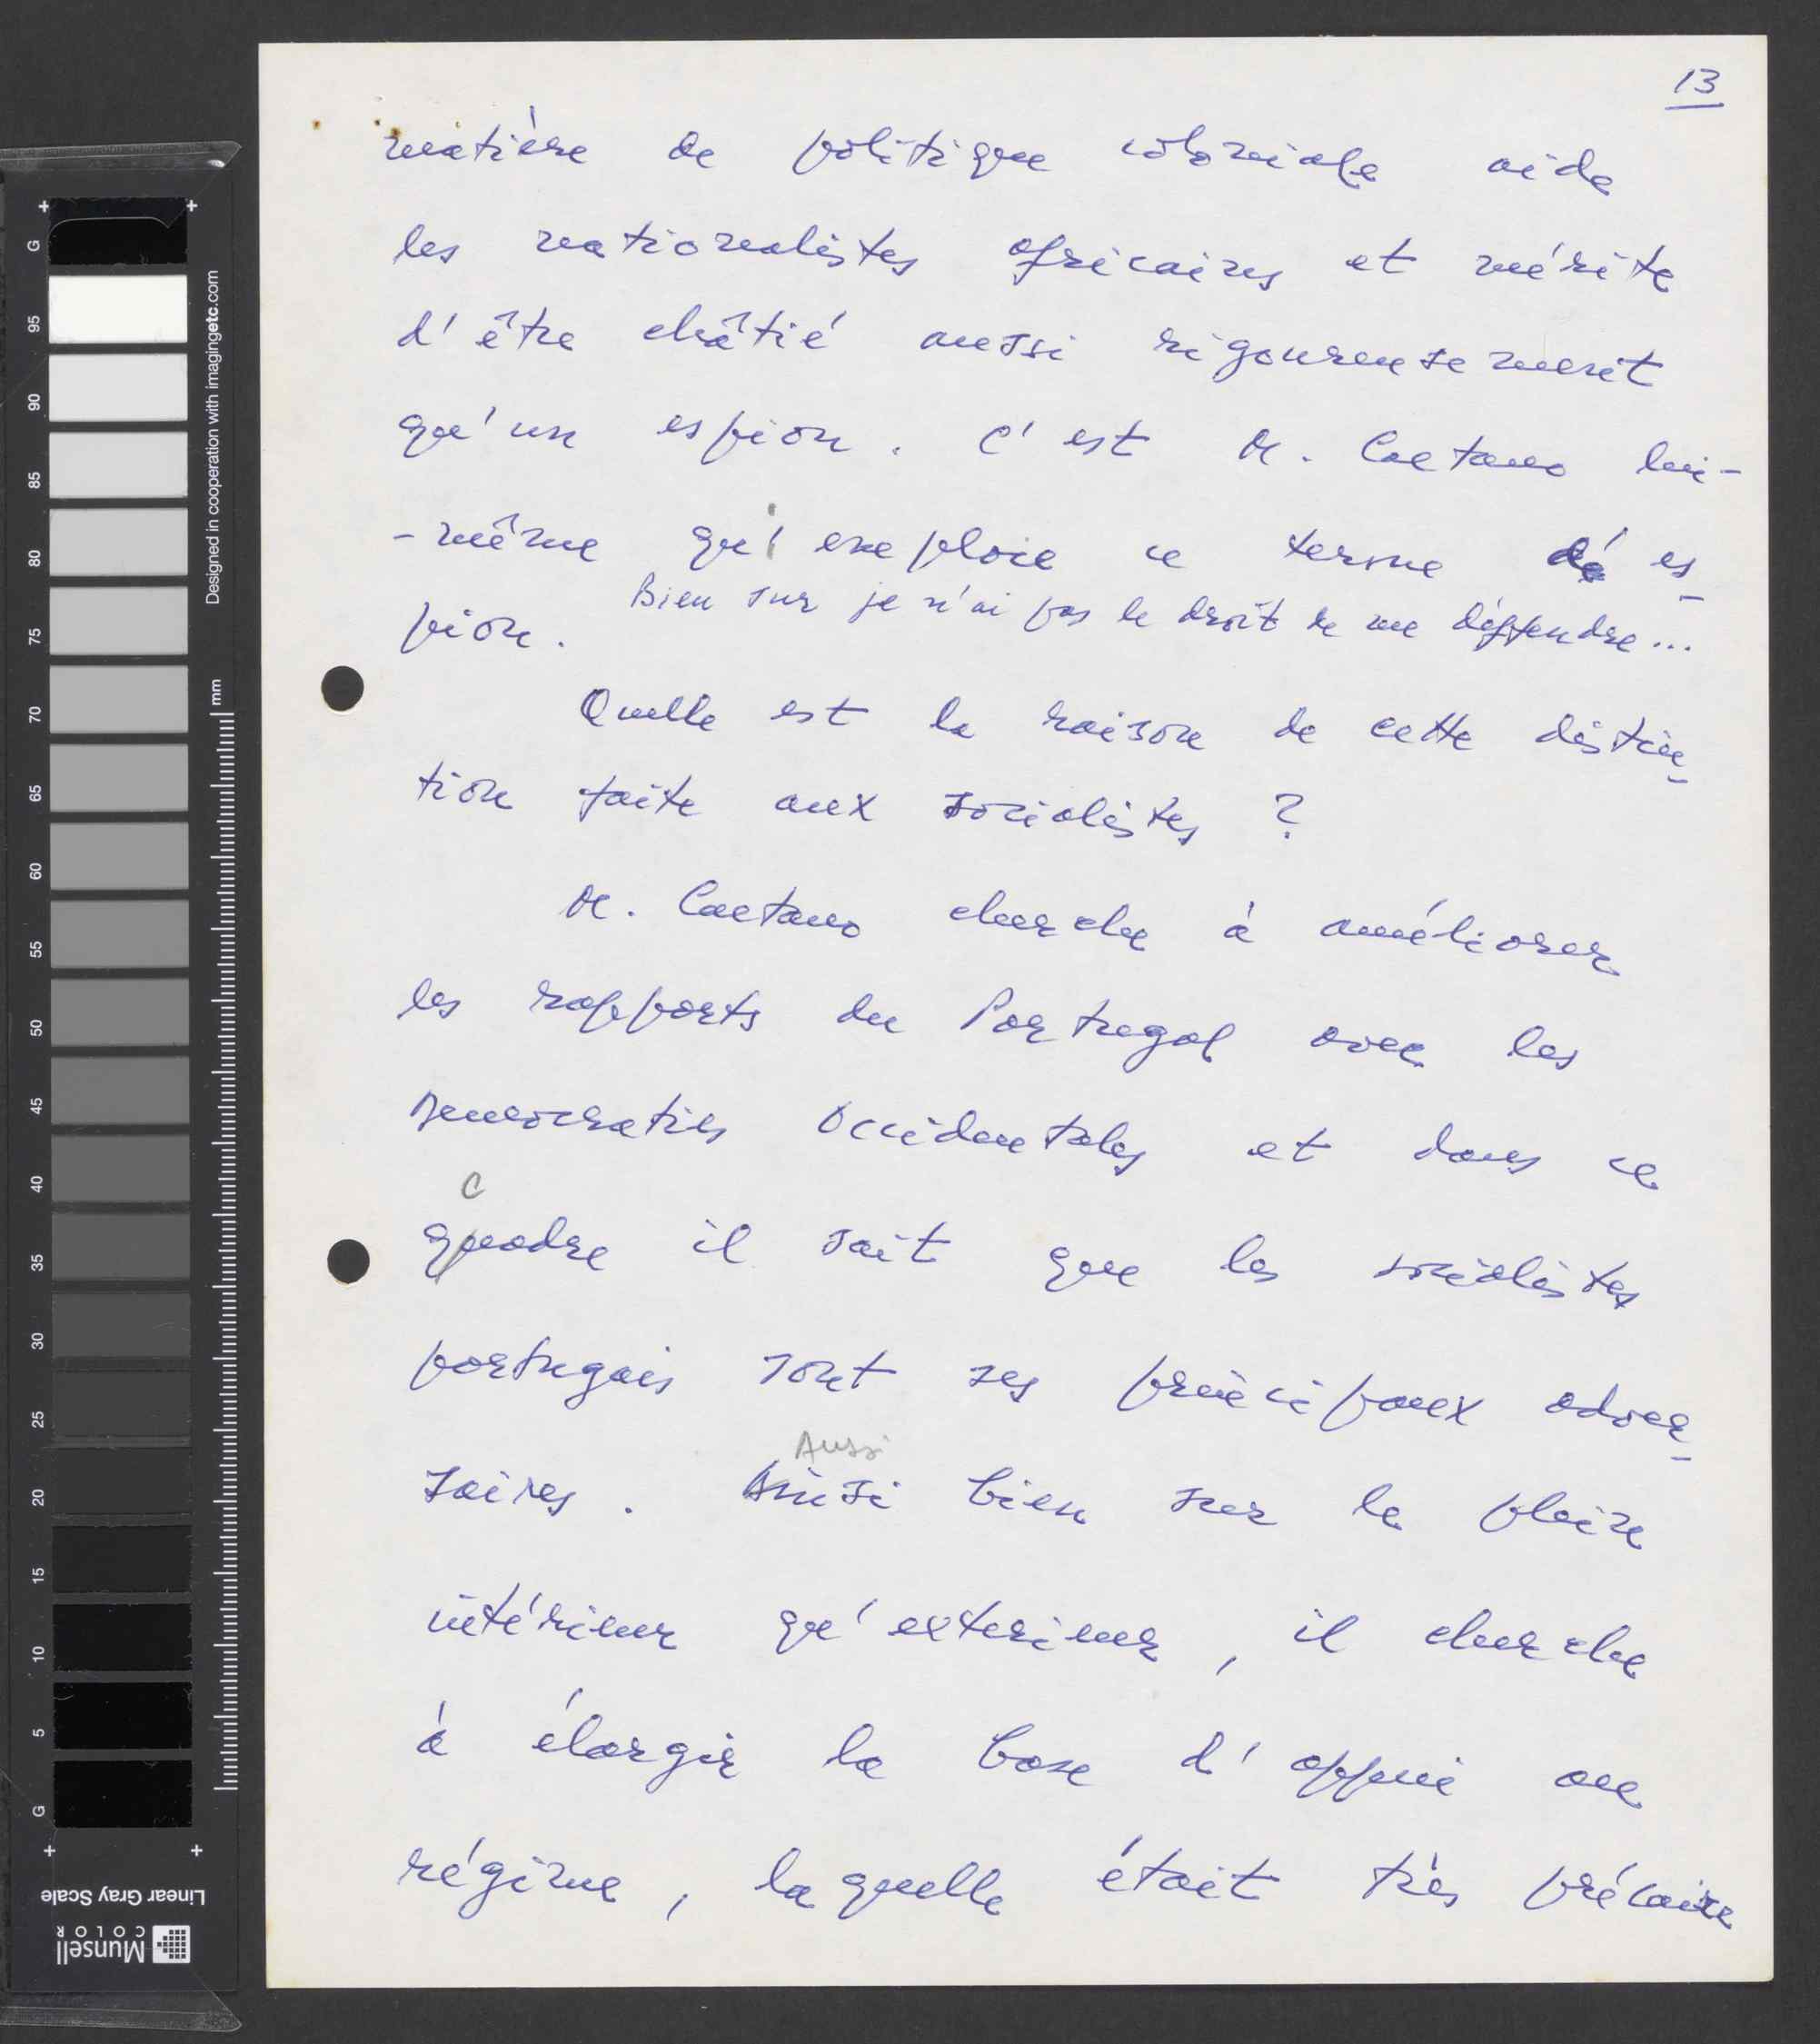 13
matière de politique coloniale aide
les nationalistes africains et mérite
d'être châtié aussi rigoureusement
qu'un espion. C'est M. Caetano lui-
-même qui emploie ce terme d'es-
pion. Bien sur je n'ai pas le droit de me déffendre...
Quelle est la raison de cette distin-
tion faite aux socialistes ?
M. Caetano cherche à améliorer
les rapports du Portugal avec les
Democraties Occidentales et dans ce
c
quadre il sait que les socialistes
portugais sont ses principaux adver-
Aussi
saires. Ainsi bien sur le plain
intérieur qu'exterieur, il cherche
à élargir la base d'appui au
régime, laquelle était très précaire
G
95
90
85
80
75
70
65
60
55
50
45
40
35
30
25
20
15
10
5
G
Designed in cooperation with imagingetc.com
mm
Linear Gray Scale
Munsell
COLOR